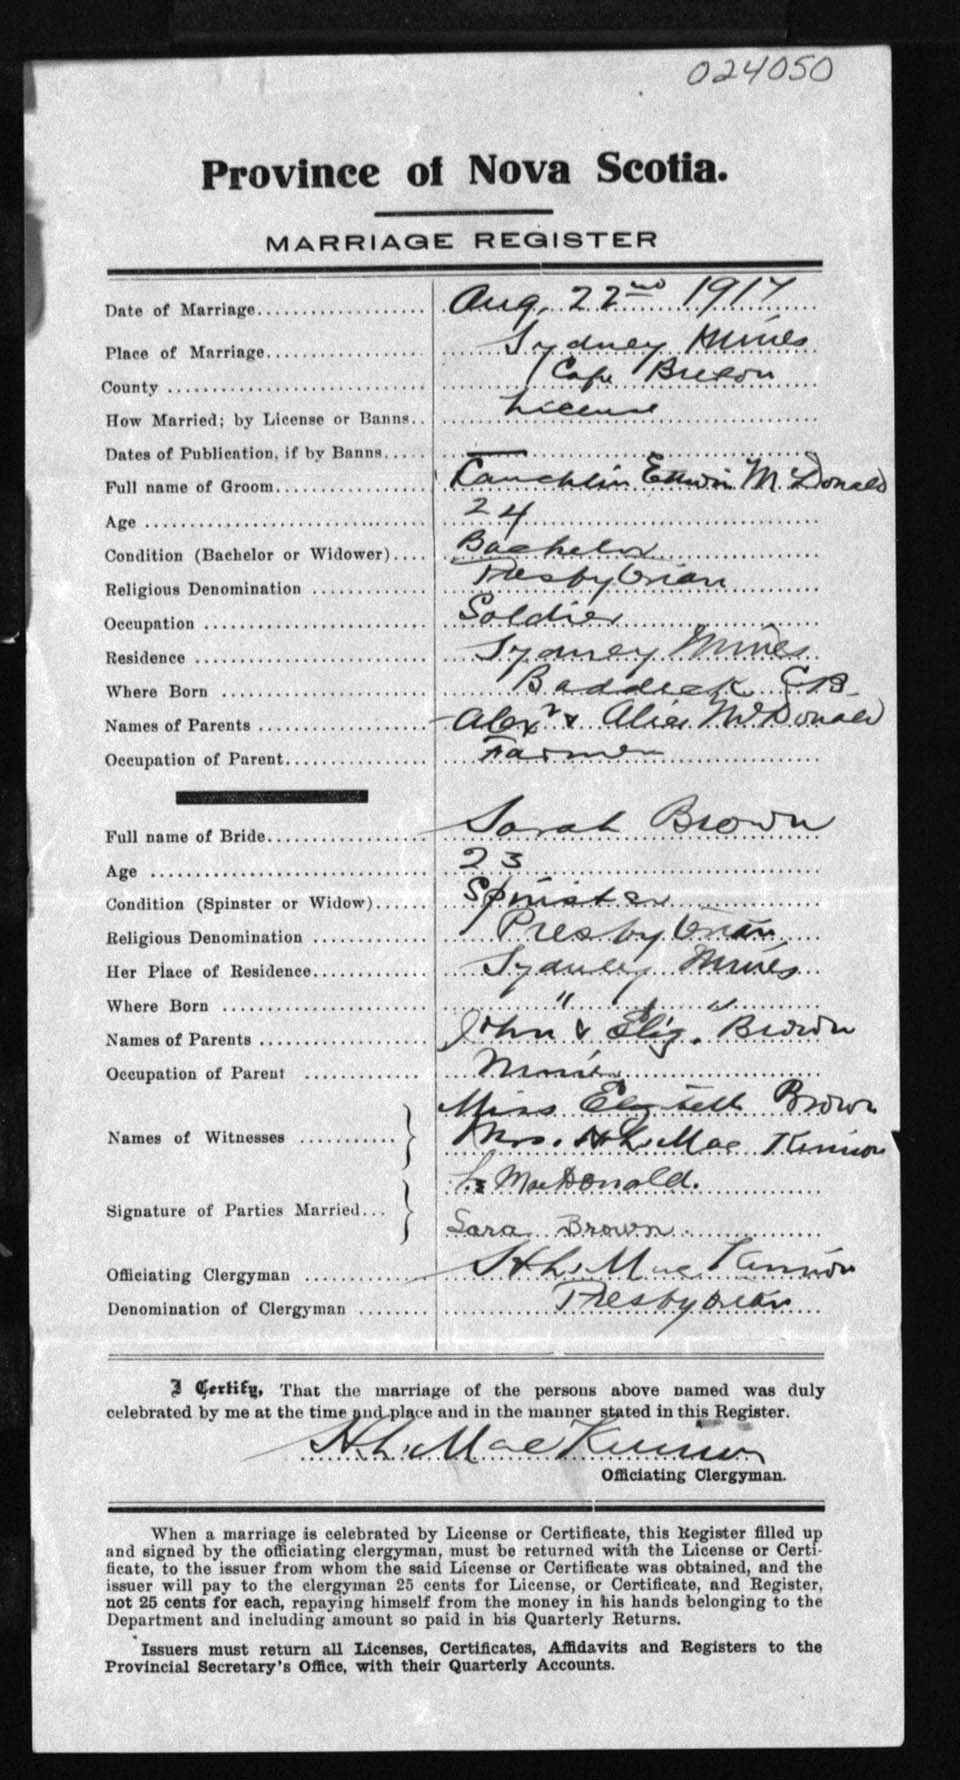 024050
Province of Nova Scotia.
MARRIAGE REGISTER
Date of Marriage Aug. 22nd 1917
Place of Marriage Sydney Mines
County Cape Breton
How Married; by License or Banns License
Dates of Publication, if by Banns —
Full name of Groom Lauchlin Edwin McDonald
Age 24
Condition (Bachelor or Widower) Bachelor
Religious Denomination Presbyterian
Occupation Soldier
Residence Sydney Mines
Where Born Baddeck C B
Names of Parents Alexr & Alice McDonald
Occupation of Parent Farmer
Full name of Bride Sarah Brown
Age 23
Condition (Spinster or Widow) Spinster
Religious Denomination Presbyterian
Her Place of Residence Sydney Mines
Where Born " "
Names of Parents John & Eliz. Brown
Occupation of Parent Miner
Names of Witnesses Miss Elizabeth Brown
Mrs. H L. MacKinnon
Signature of Parties Married L. MacDonald.
Sara Brown
Officiating Clergyman H L. MacKinnon
Denomination of Clergyman Presbyterian
I Certify, That the marriage of the persons above named was duly
celebrated by me at the time and place and in the manner stated in this Register.
H. L. MacKinnon
Officiating Clergyman.
When a marriage is celebrated by License or Certificate, this Register filled up
and signed by the officiating clergyman, must be returned with the License or Certi-
ficate, to the issuer from whom the said License or Certificate was obtained, and the
issuer will pay to the clergyman 25 cents for License, or Certificate, and Register,
not 25 cents for each, repaying himself from the money in his hands belonging to the
Department and including amount so paid in his Quarterly Returns.
Issuers must return all Licenses, Certificates, Affidavits and Registers to the
Provincial Secretary's Office, with their Quarterly Accounts.